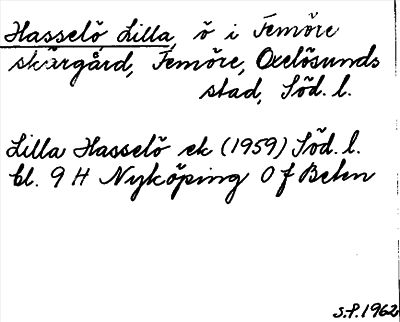 Hasselö, Lilla, ö i Femöre
skärgård, Femöre, Oxelösunds
stad, Söd. l.
Lilla Hasselö ek (1959) Söd. l.
bl. 9 H Nyköping 0 f Beten
S.P. 1962